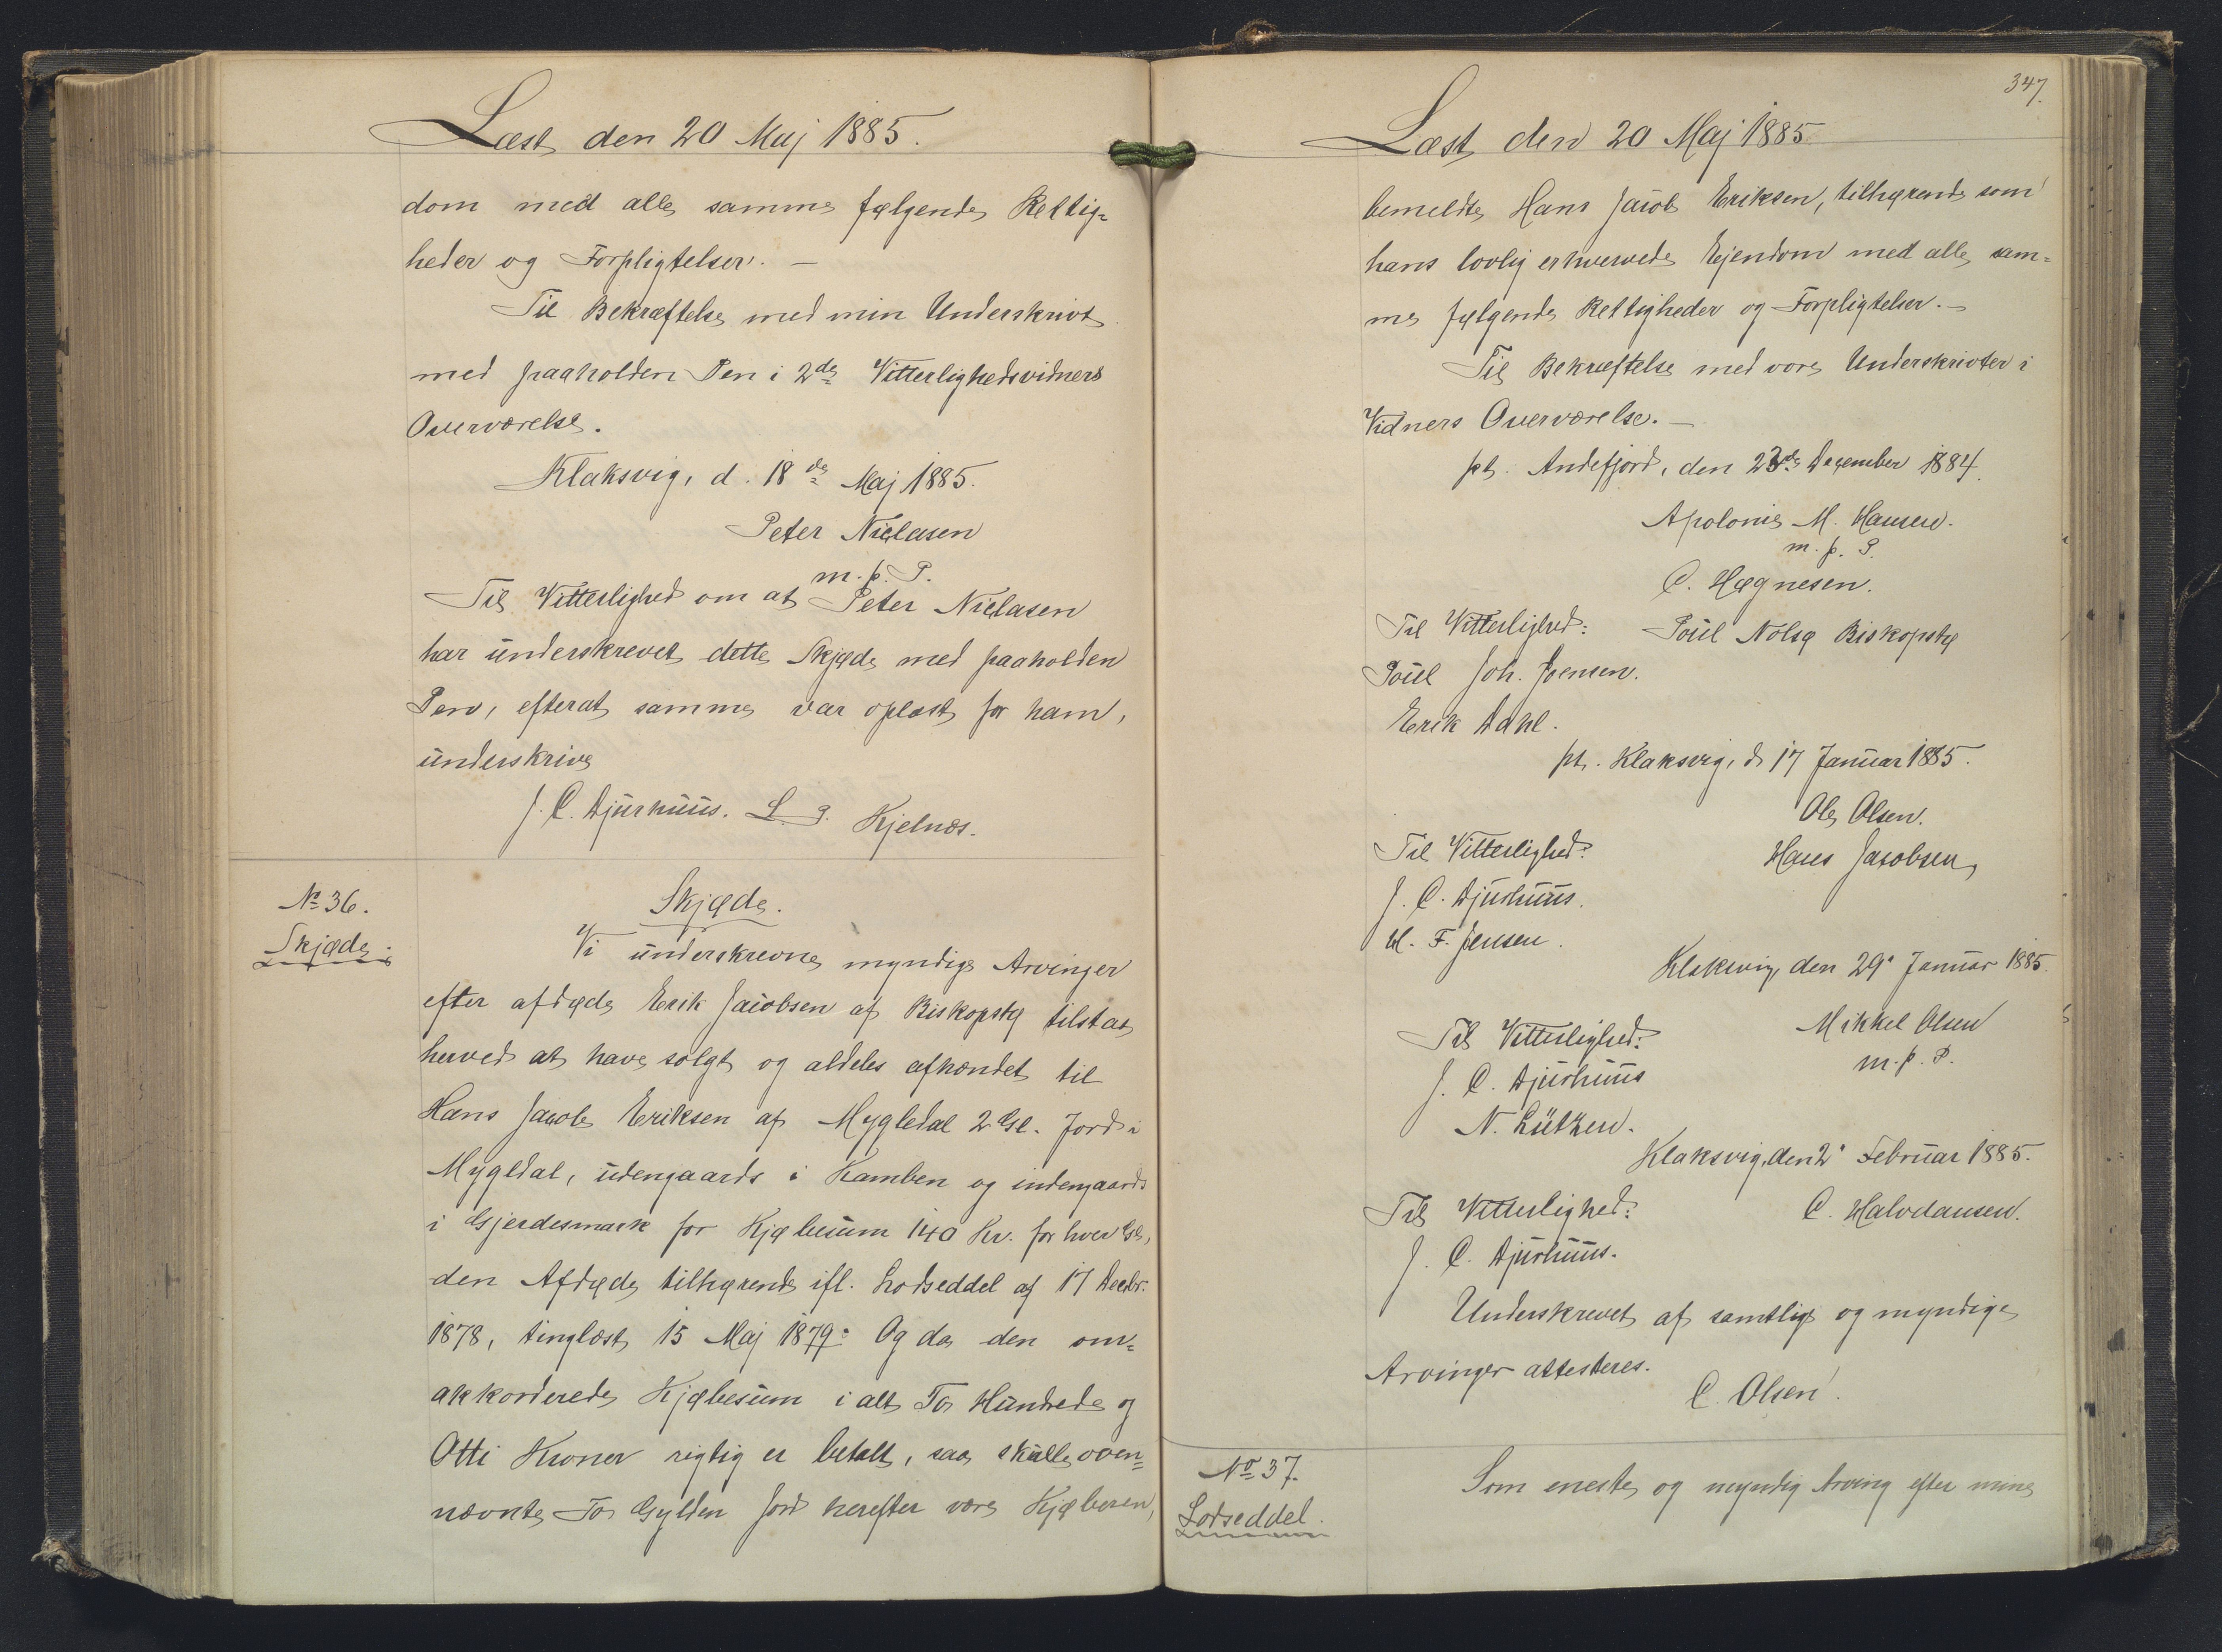 Læst den 20 Maj 1885.
dom med alle samme følgende Rettig=
heder og Forpligtelser. —
Til Bekræftelse med min Underskrivt
med paaholden Pen i 2de Vitterlighedsvidners
Overværelse.
Klaksvig, d. 18de Maj 1885.
Peter Nielasen
m. p. P.
Til Vitterlighed om at Peter Nielasen
har underskrevet dette Skjøde med paaholden
Pen, efterat samme var oplæst for ham,
underskrive
J. C. Djurhuus. Kjelnæs.
No 36.
Skjøde.
Skjøde.
Vi underskrevne myndige Arvinger
efter afdøde Erik Jacobsen af Biskopstø tilstaa
herved at have solgt og aldeles afhændet til
Hans Jacob Eriksen af Mygledal 2 Gl. Jord i
Mygledal, udengaards i Kamben og indengaards
i Gjerdesmark for Kjøbesum 140 Kr. for hver Gl.,
den Afdøde tilhørende ifl. Lodseddel af 17 Decbr.
1878, tinglæst 15 Maj 1879: Og da den om=
akkorderede Kjøbesum i alt To Hundrede og
Otti Kroner rigtig er betalt, saa skulle oven=
nævnte To Gylden Jord herefter være Kjøberen,
347.
Læst den 20 Maj 1885
bemeldte Hans Jacob Eriksen, tilhørende som
hans lovlig erhvervede Ejendom med alle sam=
me følgende Rettigheder og Forpligtelser. —
Til Bekræftelse med vore Underskrivter i
Vidners Overværelse. —
pt. Andefjord, den 23de December 1884.
Apolonie M. Hansen.
m. p. P.
C. Høgnesen.
Til Vitterlighed: Poul Nolsø Biskopstø
Poul Joh. Joensen.
Erik Dahl.
pt. Klaksvig, d 17 Januar 1885.
Ole Olsen.
Til Vitterlighed: Hans Jacobsen
J. C. Djurhuus.
H. F. Jensen.
Klaksvig, den 29. Januar 1885.
Til Vitterlighed: Mikkel Olsen
J. C. Djurhuus m. p. P.
N. Lützen.
Klaksvig, den 2. Februar 1885.
Til Vitterlighed: C. Halvdansen.
J. C. Djurhuus.
Underskrevet af samtlige og myndige
Arvinger attesteres.
C. Olsen.
No 37.
Lodseddel.
Som eneste og myndig Arving efter mine